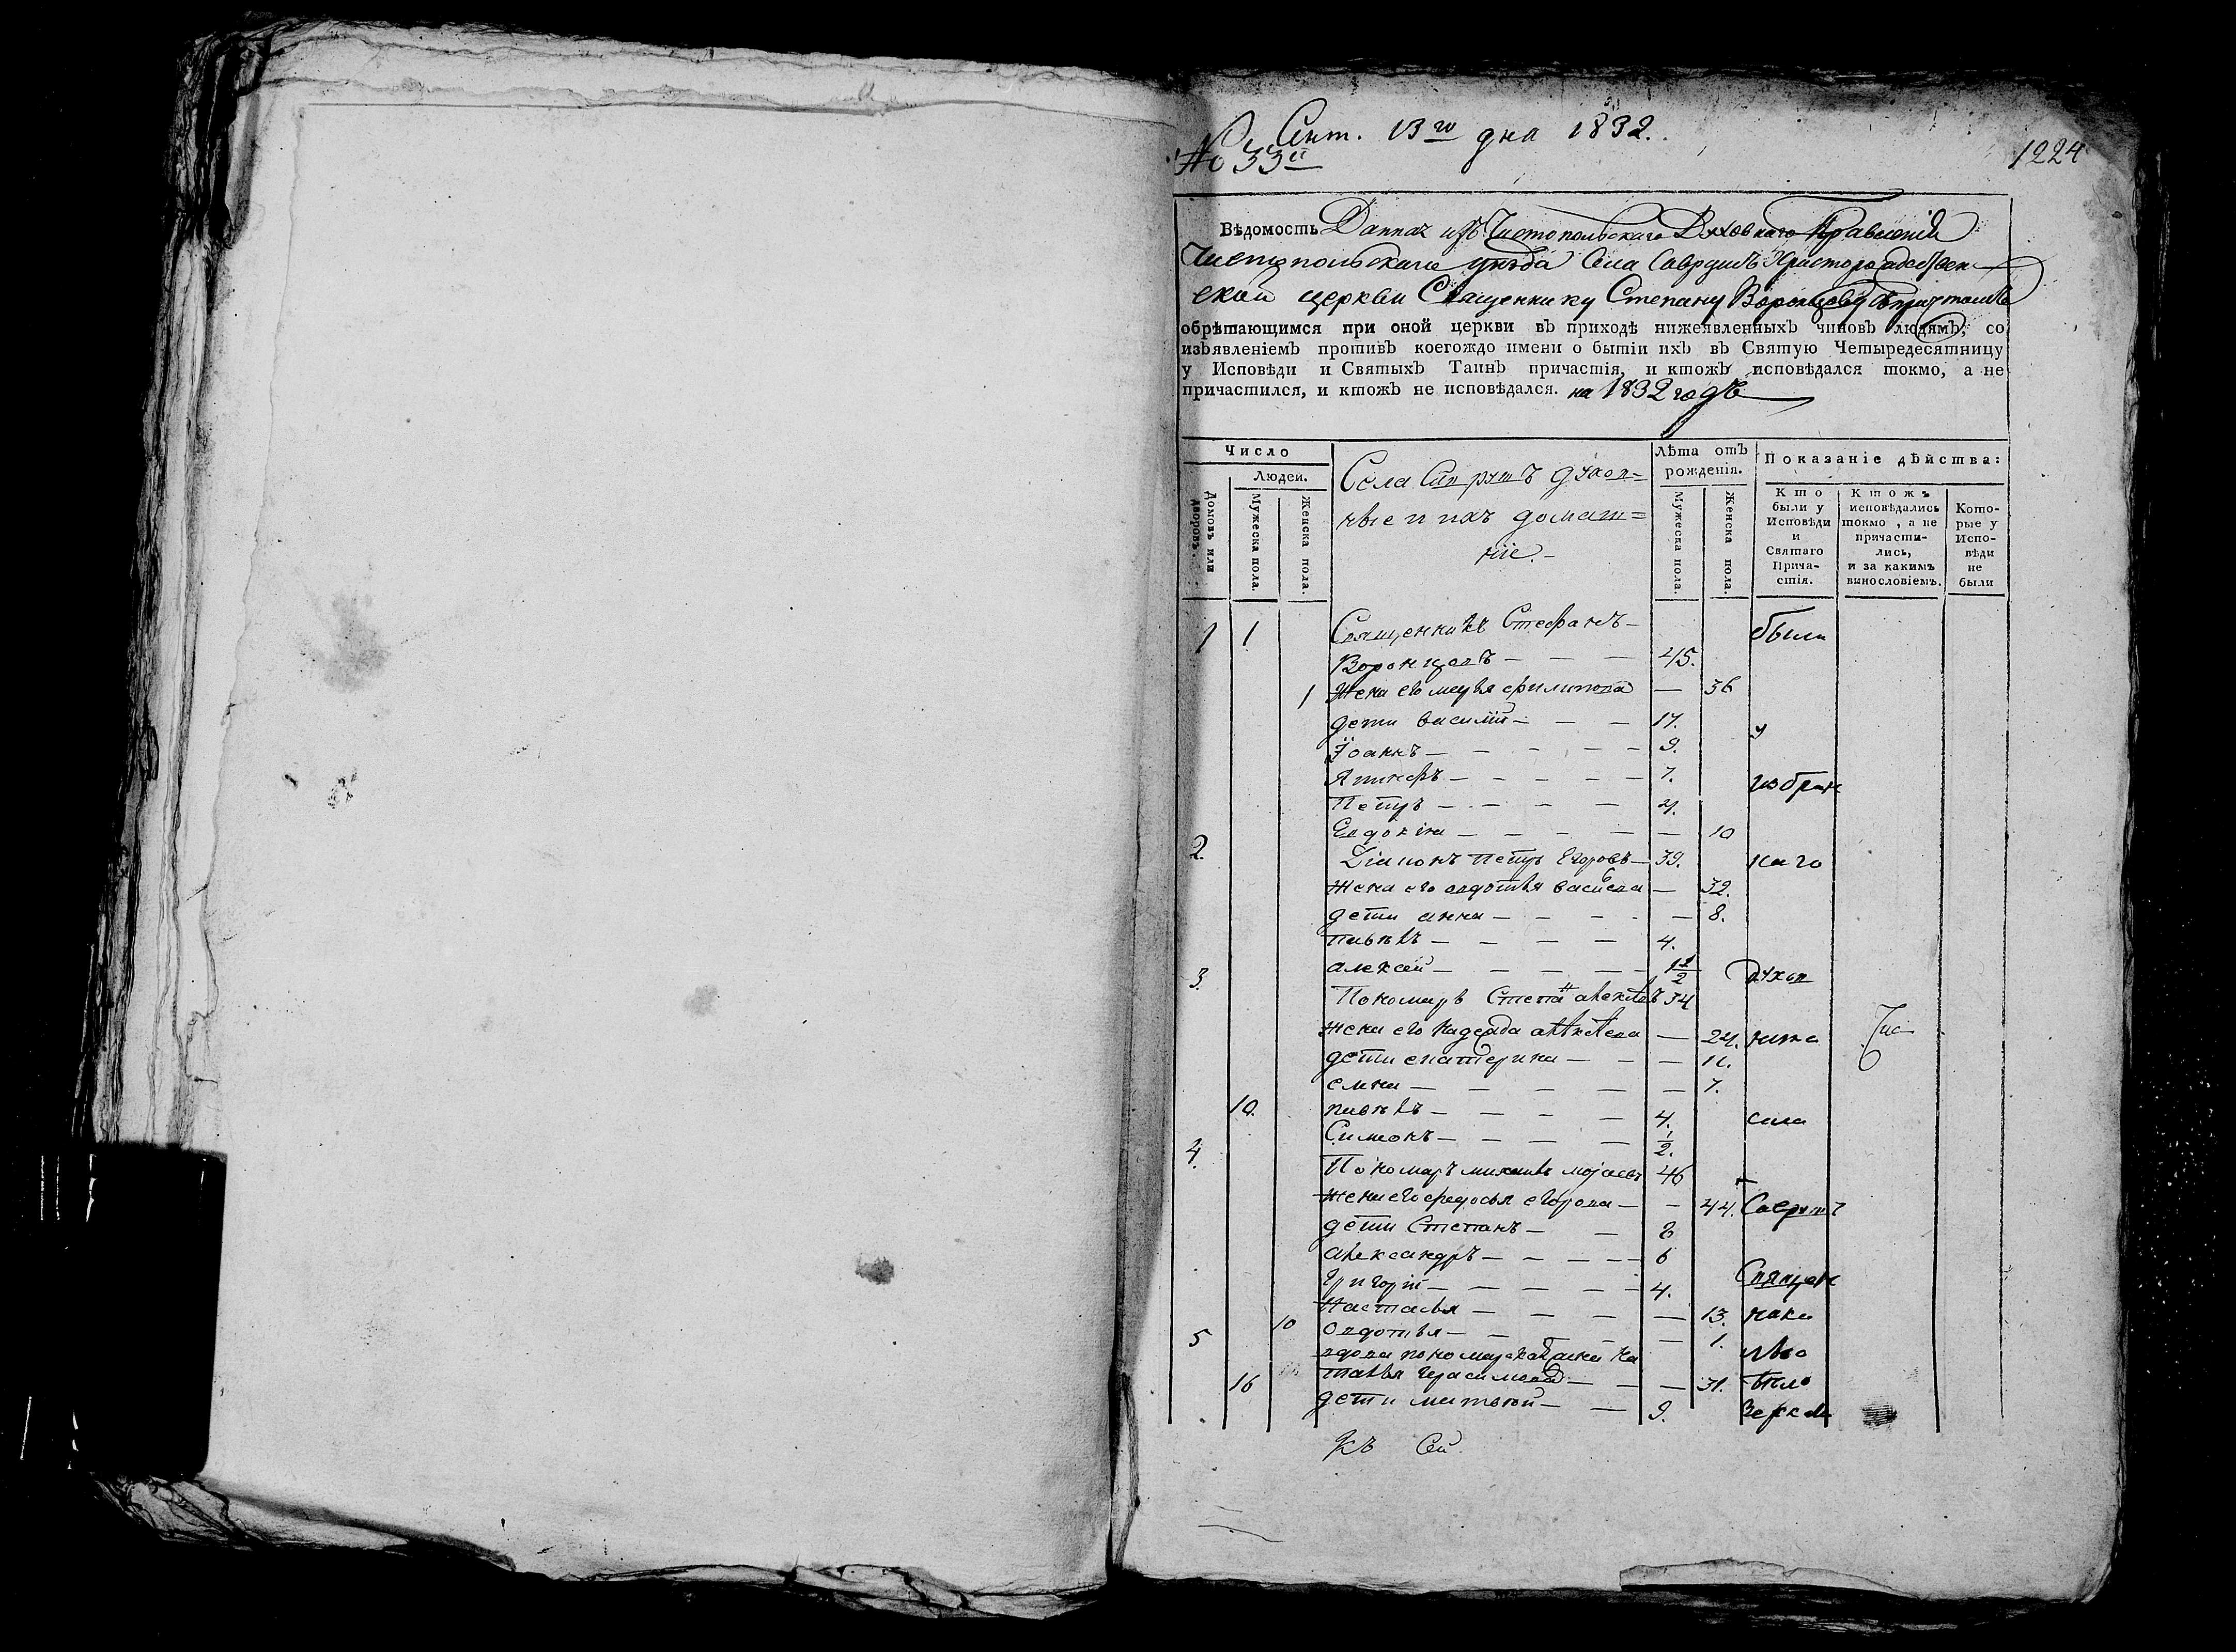 Сент. 13го дня 1832.
№ 33й
1224
Вѣдомость Данная изъ Чистопольскаго Духовнаго Правленія
Чистопольскаго уѣзда Села Саврушъ Христорождествен
ской церкви Священнику Степану Воронцову съ причтомъ
обрѣтающимся при оной церкви въ приходѣ нижеявленныхъ чиновъ людямъ, со
изъявленіемъ противъ коегождо имени о бытіи ихъ въ Святую Четыредесятницу
у Исповѣди и Святыхъ Таинъ причастія, и ктожъ исповѣдался токмо, а не
причастился, и ктожъ не исповѣдался. на 1832 годъ
Число
Людей.
Домовъ или дворовъ.
Мужеска пола.
Женска пола.
Села Саврушъ духов=
ные и ихъ домаш=
ніе.
Лѣта отъ
рожденія.
Мужеска пола.
Женска пола.
Показаніе дѣйства:
Кто
были у
Исповѣди
и
Святаго
Прича-
стія.
Ктожъ
исповѣдались
токмо, а не
причасти-
лись,
и за какимъ
винословіемъ.
Кото-
рые у
Испо-
вѣди
не
были
1 1 Священникъ Стефанъ были
Воронцовъ 45.
1 Жена его филипова 36
дети василій 17. у
Іоаннъ 9.
7. избран
Петръ 4.
Евдокіа 10
2. Діаконъ петръ Егоровъ 39. наго
жена его авдотья васиева 32.
дети анна 8.
павелъ 4.
3. алексей 1 1/2 духов
Пономарь Степан 34
жена его надежда 24. ника
дети екатерина
7.
10. павелъ 4. села
Симионъ 1/2.
4. Пономарь 46
жена его федосья егорова 44. Саврушъ
дети Степанъ 8
александръ 6
Григорій 4. Священ
Настасья 13. ника
5 10 овдотья 1.
вдова
16 Герасимова 31.
дети матвей 9.